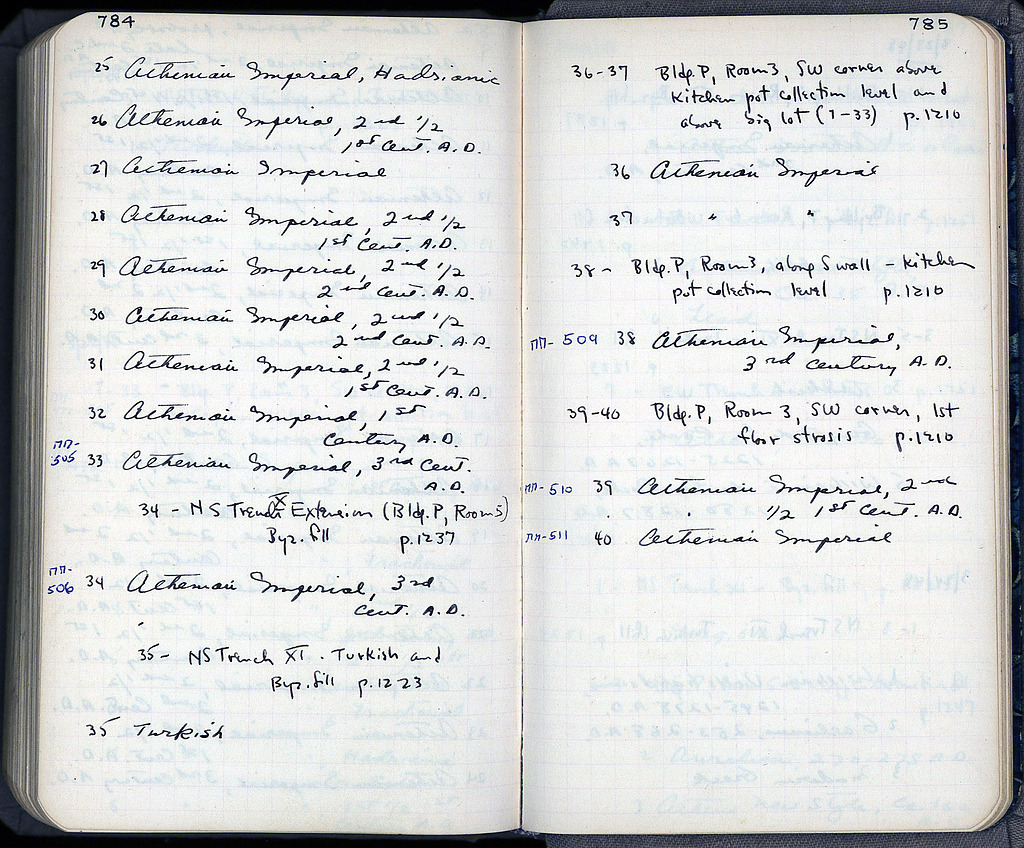 784
25 Athenian Imperial, Hadrianic
26 Athenian Imperial, 2nd 1/2
1st Cent. A.D.
27 Athenian Imperial
28 Athenian Imperial, 2nd 1/2
1st Cent. A.D.
29 Athenian Imperial, 2nd 1/2
2nd Cent. A.D.
30 Athenian Imperial, 2nd 1/2
2nd Cent. A.D.
31 Athenian Imperial, 2nd 1/2
1st Cent. A.D.
32 Athenian Imperial, 1st
Century A.D.
ΠΠ-505 33 Athenian Imperial, 3rd Cent.
A.D.
34 - NS Trench X Extension (Bldg. P, Room 3)
Byz. fill p. 1237
ΠΠ-506 34 Athenian Imperial, 3rd
Cent. A.D.
35 - NS Trench XI. Turkish and
Byz. fill p. 1223
35 Turkish
785
36-37 Bldg. P, Room 3, SW corner above
Kitchen pot collection level and
above big lot (1-33) p. 1210
36 Athenian Imperial
37 " "
38 - Bldg. P, Room 3, along S wall - Kitchen
pot collection level p. 1210
ΠΠ-509 38 Athenian Imperial,
3rd century A.D.
39-40 Bldg. P, Room 3, SW corner, 1st
floor strosis p. 1210
ΠΠ-510 39 Athenian Imperial, 2nd
1/2 1st Cent. A.D.
ΠΠ-511 40 Athenian Imperial